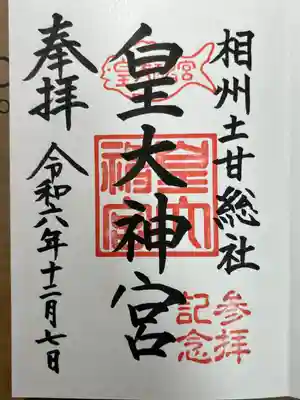 相州土甘総社
皇大神宮
奉拝
令和六年十二月七日
皇大神宮
参拝
記念